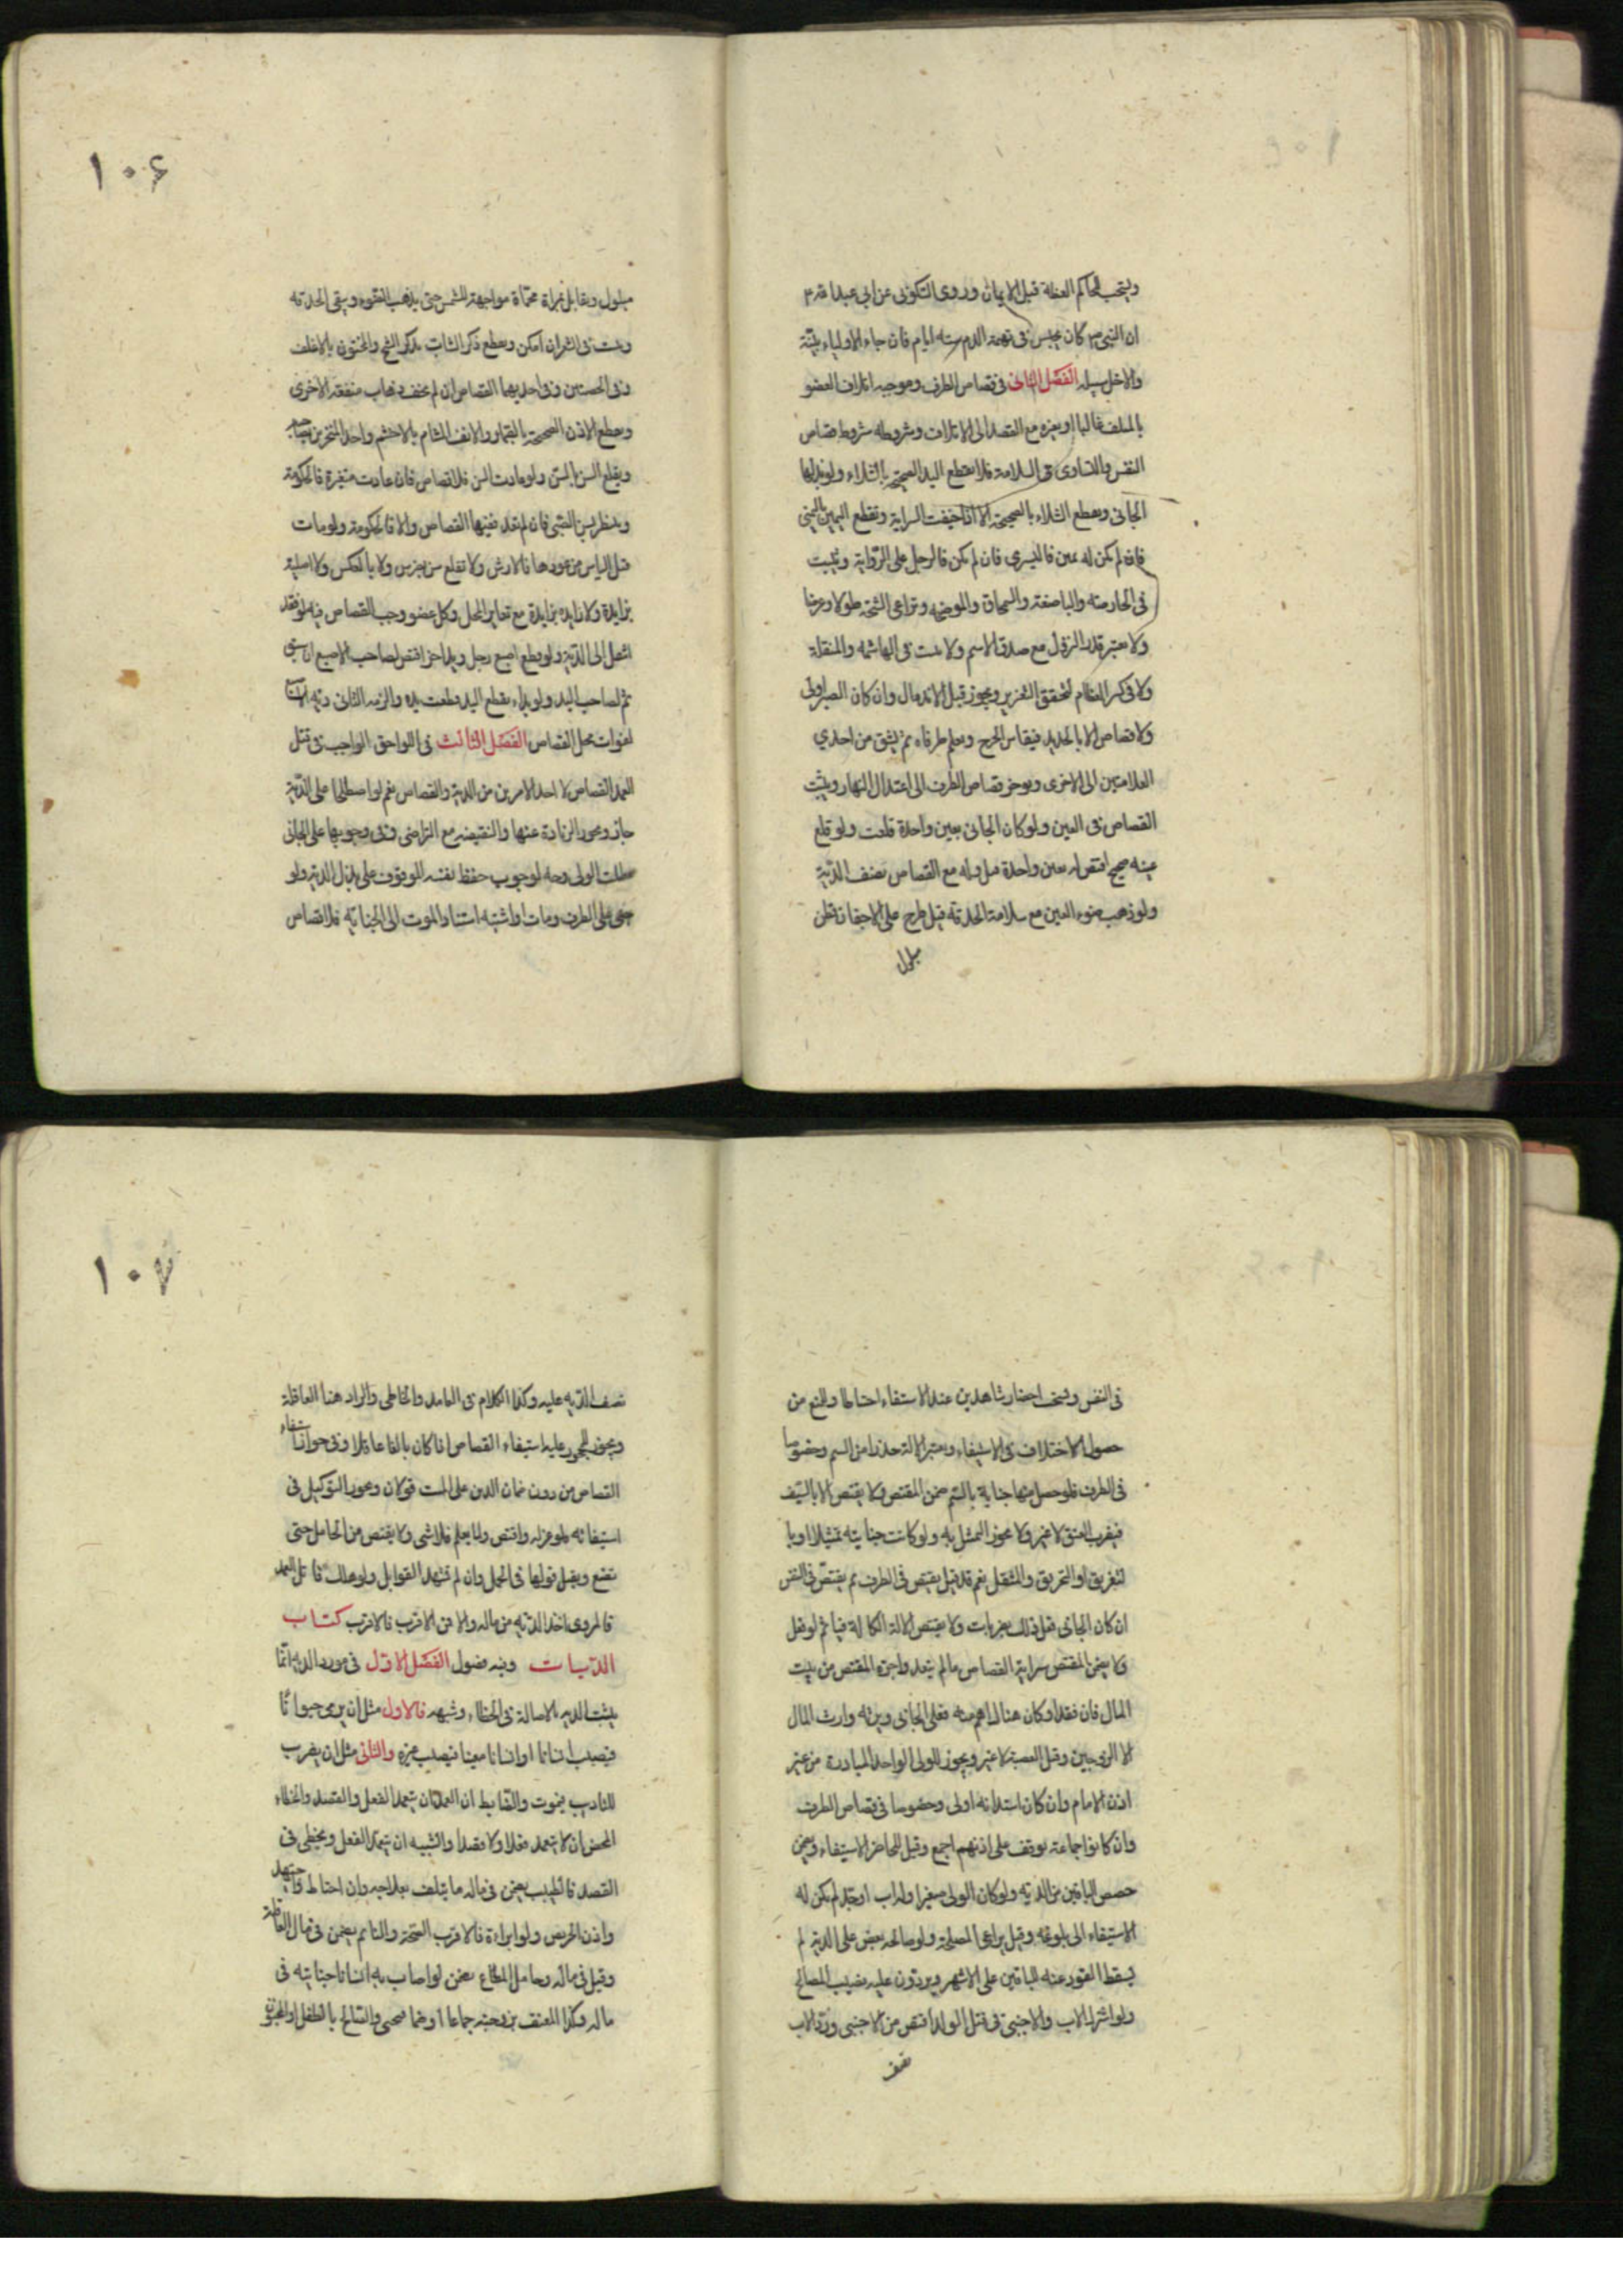 ويستحب للحاكم العظة قبل الايمان وروى السكونى عن ابى عبدالله ع
ان النبى ص كان يحبس فى تهمة الدم ستة ايام فان جاء الاولياء ببينة
والا خلى سبيله الفصل الثانى فى قصاص الطرف وموجبه اتلاف العضو
بالمتلف غالبا او بغيره مع القصد الى الاتلاف وشروطه شروط قصاص
النفس والتساوى فى السلامة فلا يقطع اليد الصحيحة بالشلاء ولو بذلها
الجانى ويقطع الشلاء بالصحيحة الا اذا خيفت السراية وتقطع اليمين باليمنى
فان لم يكن له يمين فاليسرى فان لم يكن فالرجل على الرواية ويثبت
فى الحارصة والباضعة والسمحاق والموضحة وتراعى الشجة طولا وعرضا
ولا يعتبر قدر النزول مع صدق الاسم ولا يثبت فى الهاشمة والمنقلة
ولا فى كسر العظام لتحقق التغرير ويجوز قبل الاندمال وان كان الصبر اولى
ولا قصاص الا بالحديد فيقاس الجرح ويعلم طرفاه ثم يشق من احدى
العلامتين الى الاخرى ويوخر قصاص الطرف الى اعتدال النهار ويثبت
القصاص فى العين ولو كان الجانى بعين واحدة قلعت ولو قلع
عينه صحيح اقتص له بعين واحدة قيل وله مع القصاص نصف الدية
ولو ذهب ضوء العين مع سلامة الحدقة قيل طرح على الاجفان قطن
مبلول
١٠۶
مبلول ويقابل بمراة محماة مواجهة الشمس حتى يذهب الضوء ويبقى الحدقة
ويثبت فى الشعر ان امكن ويقطع ذكر الشاب بذكر الشيخ والمختون بالاغلف
وفى الخصيتين وفى احديهما القصاص ان لم يخف ذهاب منفعة الاخرى
ويقطع الاذن الصحيحة بالصماء والانف الشام بالاخشم واحد المنخرين بصاحبه
ويقلع السن بالسن ولو عادت السن فلا قصاص فان عادت متغيرة فالحكومة
وينتظر بسن الصبى فان لم تعد ففيها القصاص والا فالحكومة ولو مات
قبل الياس من عودها فالارش ولا تقلع سن بضرس ولا بالعكس ولا اصلية
بزايدة ولا زايدة بزايدة مع تغاير المحل وكل عضو وجب القصاص فيه لو فقد
انتقل الى الدية ولو قطع اصبع رجل ويد اخر اقتص لصاحب الاصبع ان سبق
ثم لصاحب اليد ولو بداء بقطع اليد قطعت يده والزمه الثانى دية
لفوات محل القصاص الفصل الثالث فى اللواحق الواجب فى قتل
العمد القصاص لا احد الامرين من الدية والقصاص نعم لو اصطلحا على الدية
جاز ويجوز الزيادة عنها والنقيصة مع التراضى وفى وجوبها على الجانى
بطلب الولى وجه لوجوب حفظ نفسه الموقوف على بذل الدية ولو
جنى على الطرف ومات واشتبه استناد الموت الى الجناية فلا قصاص
فى النفس ويستحب احضار شاهدين عند الاستيفاء احتياطا والمنع من
حصول الاختلاف فى الاستيفاء ويعتبر الالة حذرا من السم وخصوصا
فى الطرف فلو حصل منها جناية بالسم ضمن المقتص ولا يقتص الا بالسيف
فيضرب العنق لا غير ولا يجوز التمثيل به ولو كانت جنايته تمثيلا او با
لتغريق او التحريق والمثقل نعم قد قيل يقتص فى الطرف ثم يقتص فى النفس
ان كان الجانى فعل ذلك بضربات ولا يقتص بالالة الكالة فياثم لو فعل
ولا يضمن المقتص سراية القصاص مالم يتعد واجرة المقتص من بيت
المال فان فقد او كان هناك اهم منه فعلى الجانى ويرثه وارث المال
الا الزوجين وقيل العصبة لا غير ويجوز للولى الواحد المبادرة من غير
اذن الامام وان كان استيذانه اولى وخصوصا فى قصاص الطرف
وان كانوا جماعة توقف على اذنهم اجمع وقيل للحاضر الاستيفاء ويضمن
حصص الباقين من الدية ولو كان الولى صغيرا وله اب او جد لم يكن له
الاستيفاء الى بلوغه وقيل يراعى المصلحة ولو صالحه بعض على الدية لم
يسقط القود عنه للباقين على الاشهر ويردون عليه نصيب المصالح
ولو اشترك الاب والاجنبى فى قتل الولد اقتص من الاجنبى ورد الاب
نصف
١٠٧
نصف الدية عليه وكذا الكلام فى العامد والخاطى والراد هنا العاقلة
ويجوز للمحجور عليه استيفاء القصاص اذا كان بالغا عاقلا وفى جواز استيفاء
القصاص من دون ضمان الدين على الميت قولان ويجوز التوكيل فى
استيفائه فلو عزله واقتص ولما يعلم فلا شى ولا يقتص من الحامل حتى
تضع ويقبل قولها فى الحمل وان لم تشهد القوابل ولو هلك قاتل العمد
فالمروى اخذ الدية من ماله والا فمن الاقرب فالاقرب كتاب
الديات وفيه فصول الفصل الاول فى مورد الدية انما
يثبت الدية بالاصالة فى الخطاء وشبهه فالاول مثل ان يرمى حيوانا
فيصيب انسانا او انسانا معينا فيصيب غيره والثانى مثل ان يضرب
للتاديب فيموت والضابط ان العمد ان يتعمد الفعل والقصد والخطاء
المحض ان لا يتعمد فعلا ولا قصدا والشبيه ان يتعمد الفعل ويخطى فى
القصد فالطبيب يضمن فى ماله ما يتلف بعلاجه وان احتاط واجتهد
واذن المريض ولو ابراءه فالاقرب الصحة والنائم يضمن فى مال العاقلة
وقيل فى ماله وحامل المتاع يضمن لو اصاب به انسانا جنايته فى
ماله وكذا المعنف بزوجته جماعا او ضما فيجنى والصائح بالطفل او المجنون